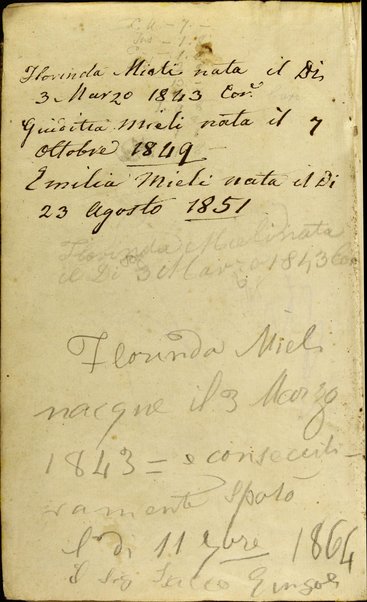 Florinda Mieli nata il Di
3 Marzo 1843 Cor.
Giuditta Mieli nata il 7
Ottobre 1849
Emilia Mieli nata il Di
23 Agosto 1851
Florinda Mieli nata
il Di 3 Marzo 1843 Cor
Florinda Mieli
nacque il 3 Marzo
1843 = e consecuti-
vamente sposò
li di 11 9bre 1864
Il Sig